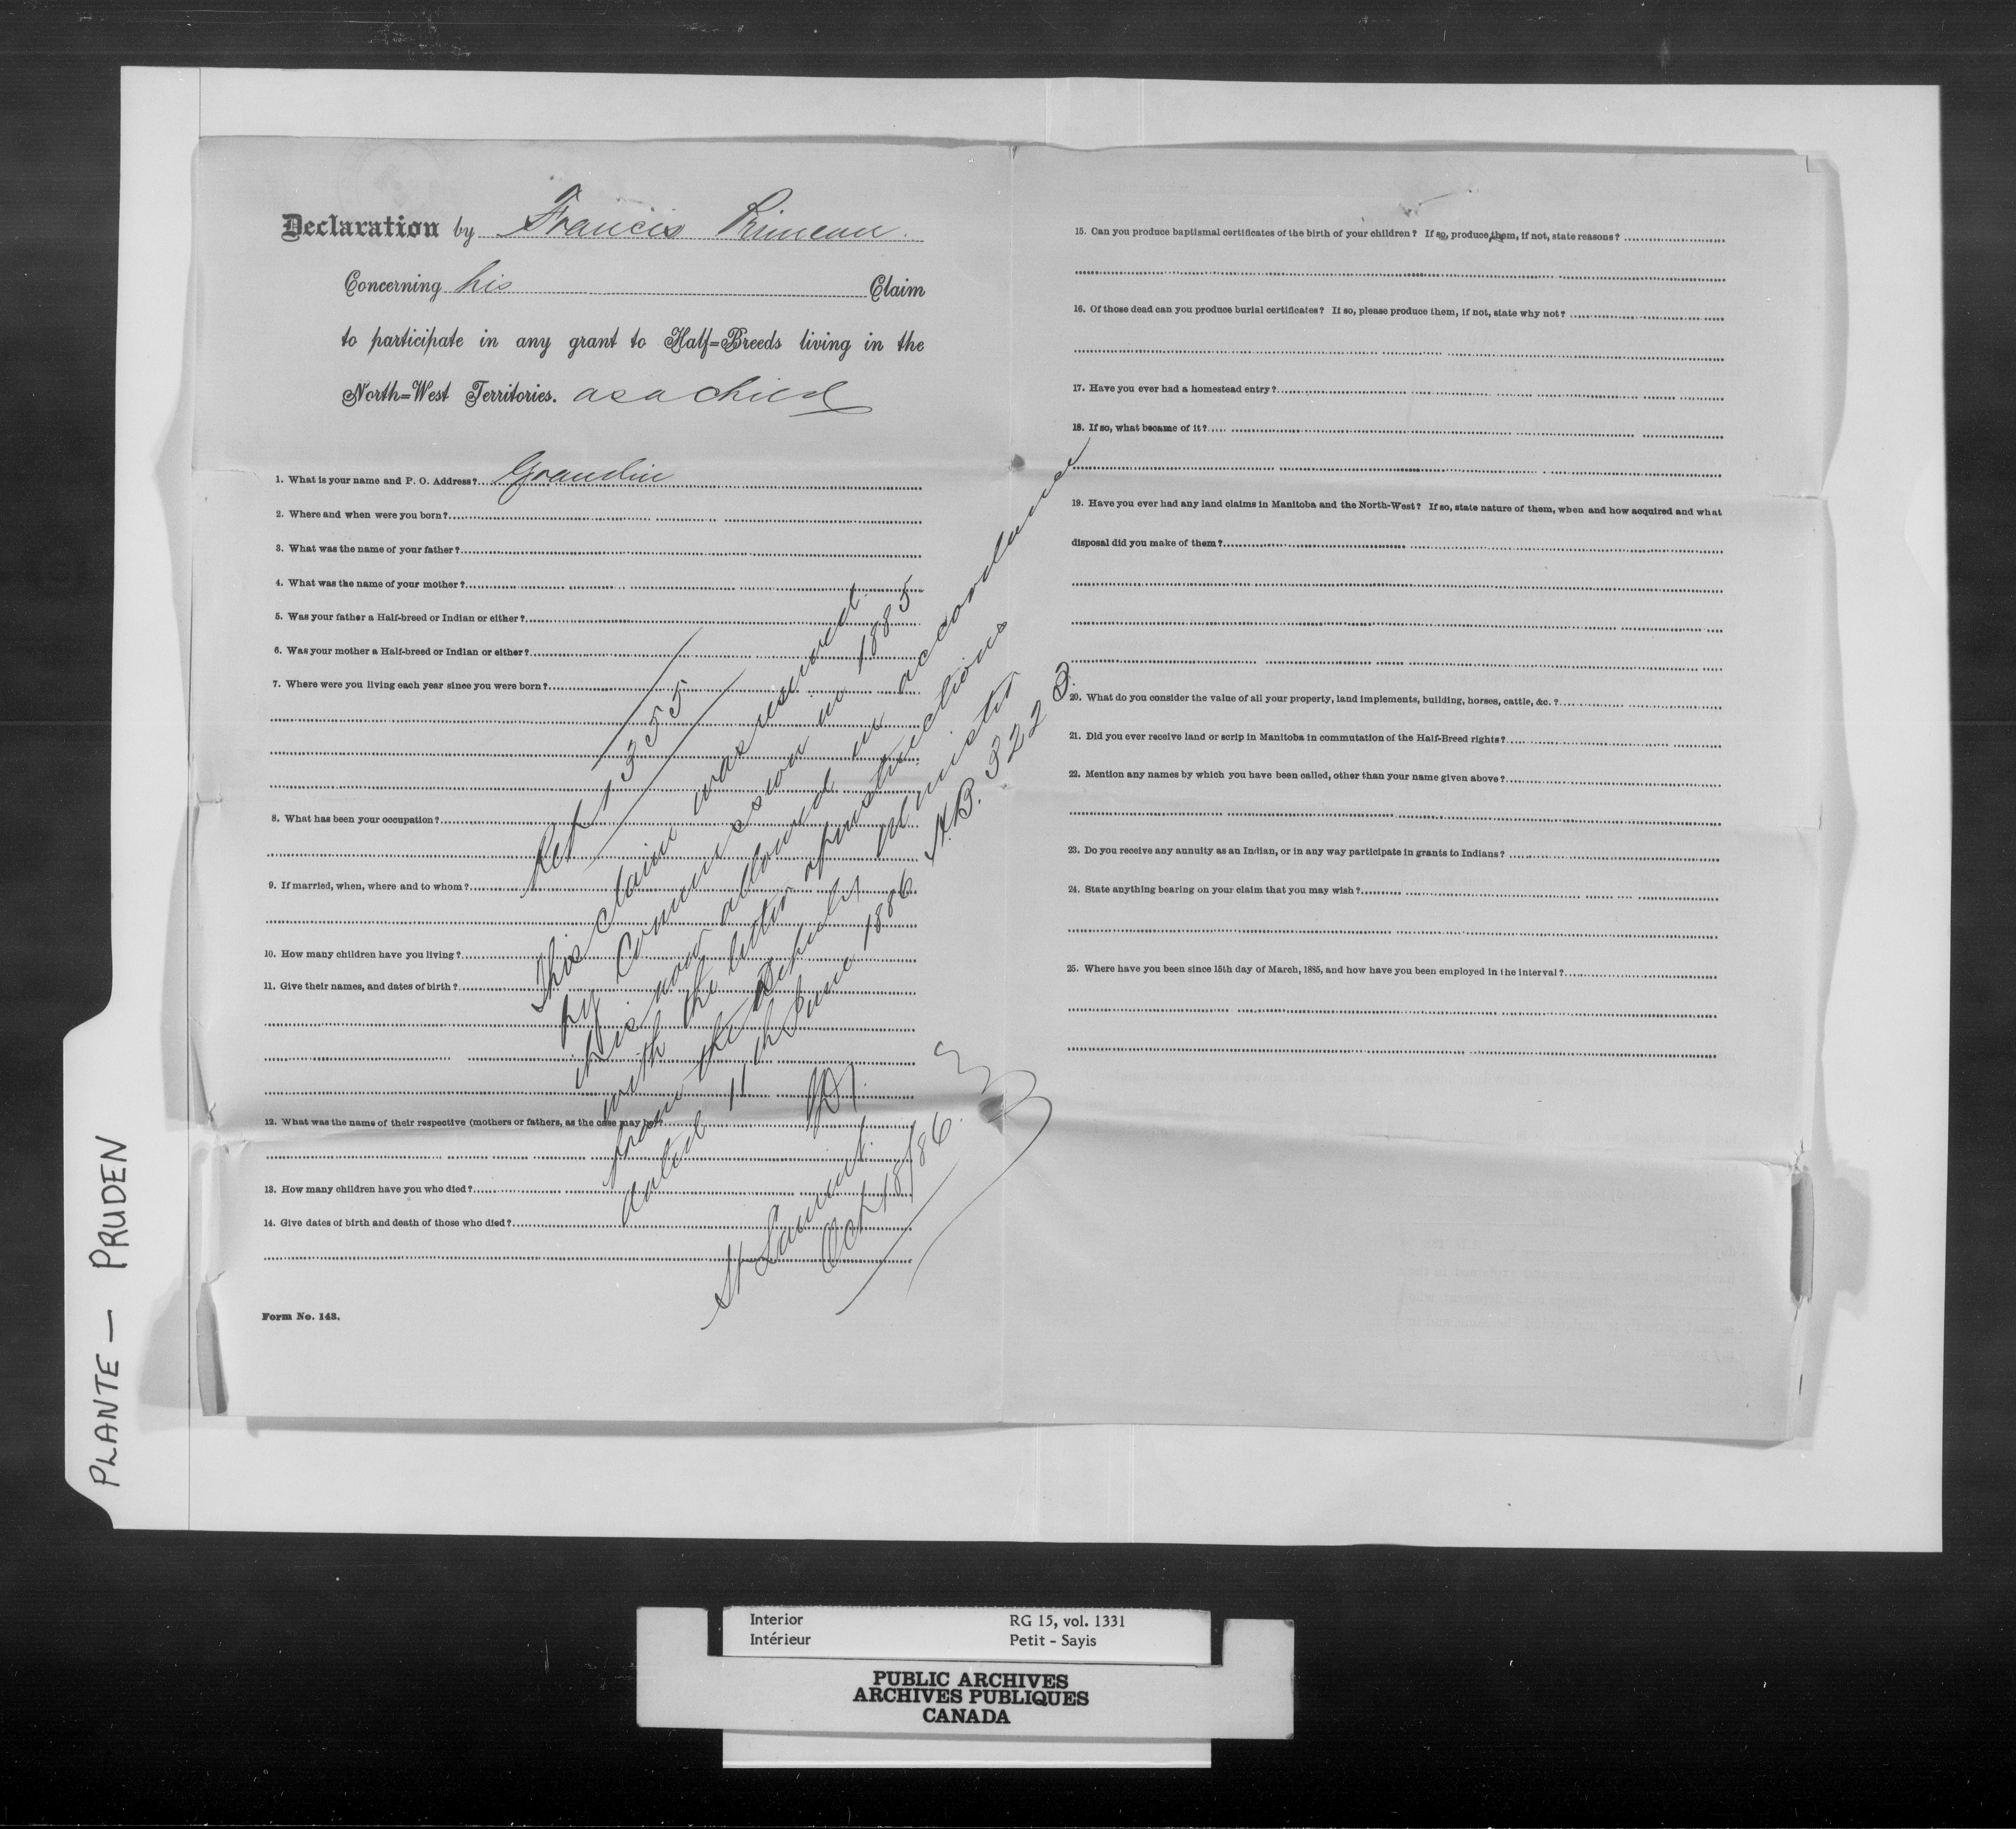 Declaration by Francis Primeau.
Concerning his Claim
to participate in any grant to Half=Breeds living in the
North=West Territories. as a child
1. What is your name and P. O. Address? Grandin
2. Where and when were you born?
3. What was the name of your father?
4. What was the name of your mother?
5. Was your father a Half-breed or Indian or either?
6. Was your mother a Half-breed or Indian or either?
7. Where were you living each year since you were born?
8. What has been your occupation?
9. If married, when, where and to whom?
10. How many children have you living?
11. Give their names, and dates of birth?
12. What was the name of their respective (mothers or fathers, as the case may be)?
13. How many children have you who died?
14. Give dates of birth and death of those who died?
Form No. 143.
Ref 1355
This claim was reserved
by Commission in 1885
it is now allowed in accordance
with the letter of instructions
from the Deputy Minister
dated 11th June 1886. H.B. 3223.
St Laurent.
Oct 18/86.
15. Can you produce baptismal certificates of the birth of your children? If so, produce them, if not, state reasons?
16. Of those dead can you produce burial certificates? If so, please produce them, if not, state why not?
17. Have you ever had a homestead entry?
18. If so, what became of it?
19. Have you ever had any land claims in Manitoba and the North-West? If so, state nature of them, when and how acquired and what
disposal did you make of them?
20. What do you consider the value of all your property, land implements, building, horses, cattle, &c.?
21. Did you ever receive land or scrip in Manitoba in commutation of the Half-Breed rights?
22. Mention any names by which you have been called, other than your name given above?
23. Do you receive any annuity as an Indian, or in any way participate in grants to Indians?
24. State anything bearing on your claim that you may wish?
25. Where have you been since 15th day of March, 1885, and how have you been employed in the interval?
PLANTE — PRUDEN
Interior RG 15, vol. 1331
Intérieur Petit - Sayis
PUBLIC ARCHIVES
ARCHIVES PUBLIQUES
CANADA